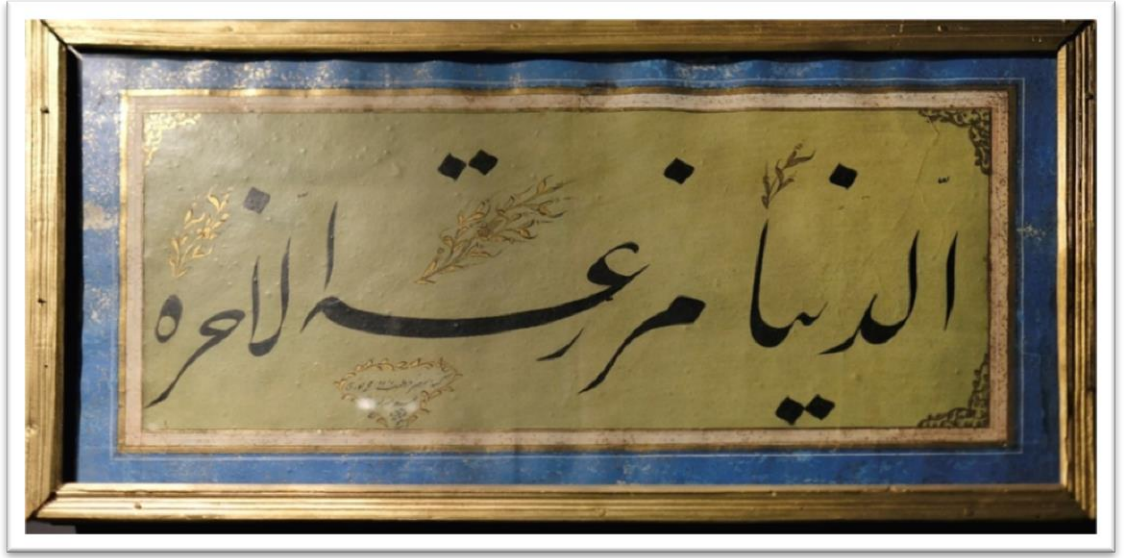 الدنيا مزرعة الاخره